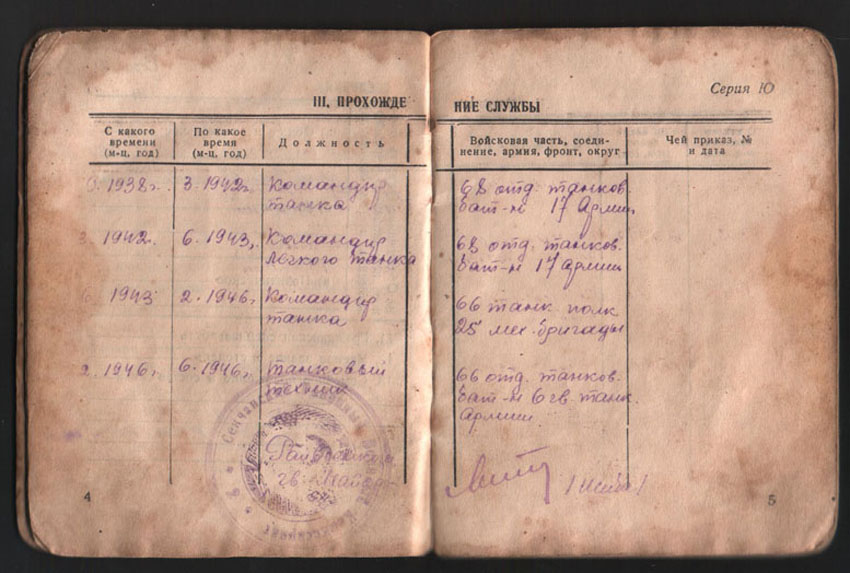 Серия Ю
III. ПРОХОЖДЕ НИЕ СЛУЖБЫ
С какого времени (м-ц, год)
По какое время (м-ц, год)
Должность
Войсковая часть, соеди-
нение, армия, фронт, округ
Чей приказ, №
и дата
1938г. 3.1942г. Командир 68 отд. танков.
танка бат-н 17 Армии
1942. 6.1943г. Командир 68 отд. танков.
легкого танка бат-н 17 Армии
6. 1943 2.1946г. Командир 66 танк. полк
танка 25 мех. бригады
2.1946г. 6.1946г. танковый 66 отд. танков.
техник бат-н 6 гв. танк.
Армии.
гв.
4
5